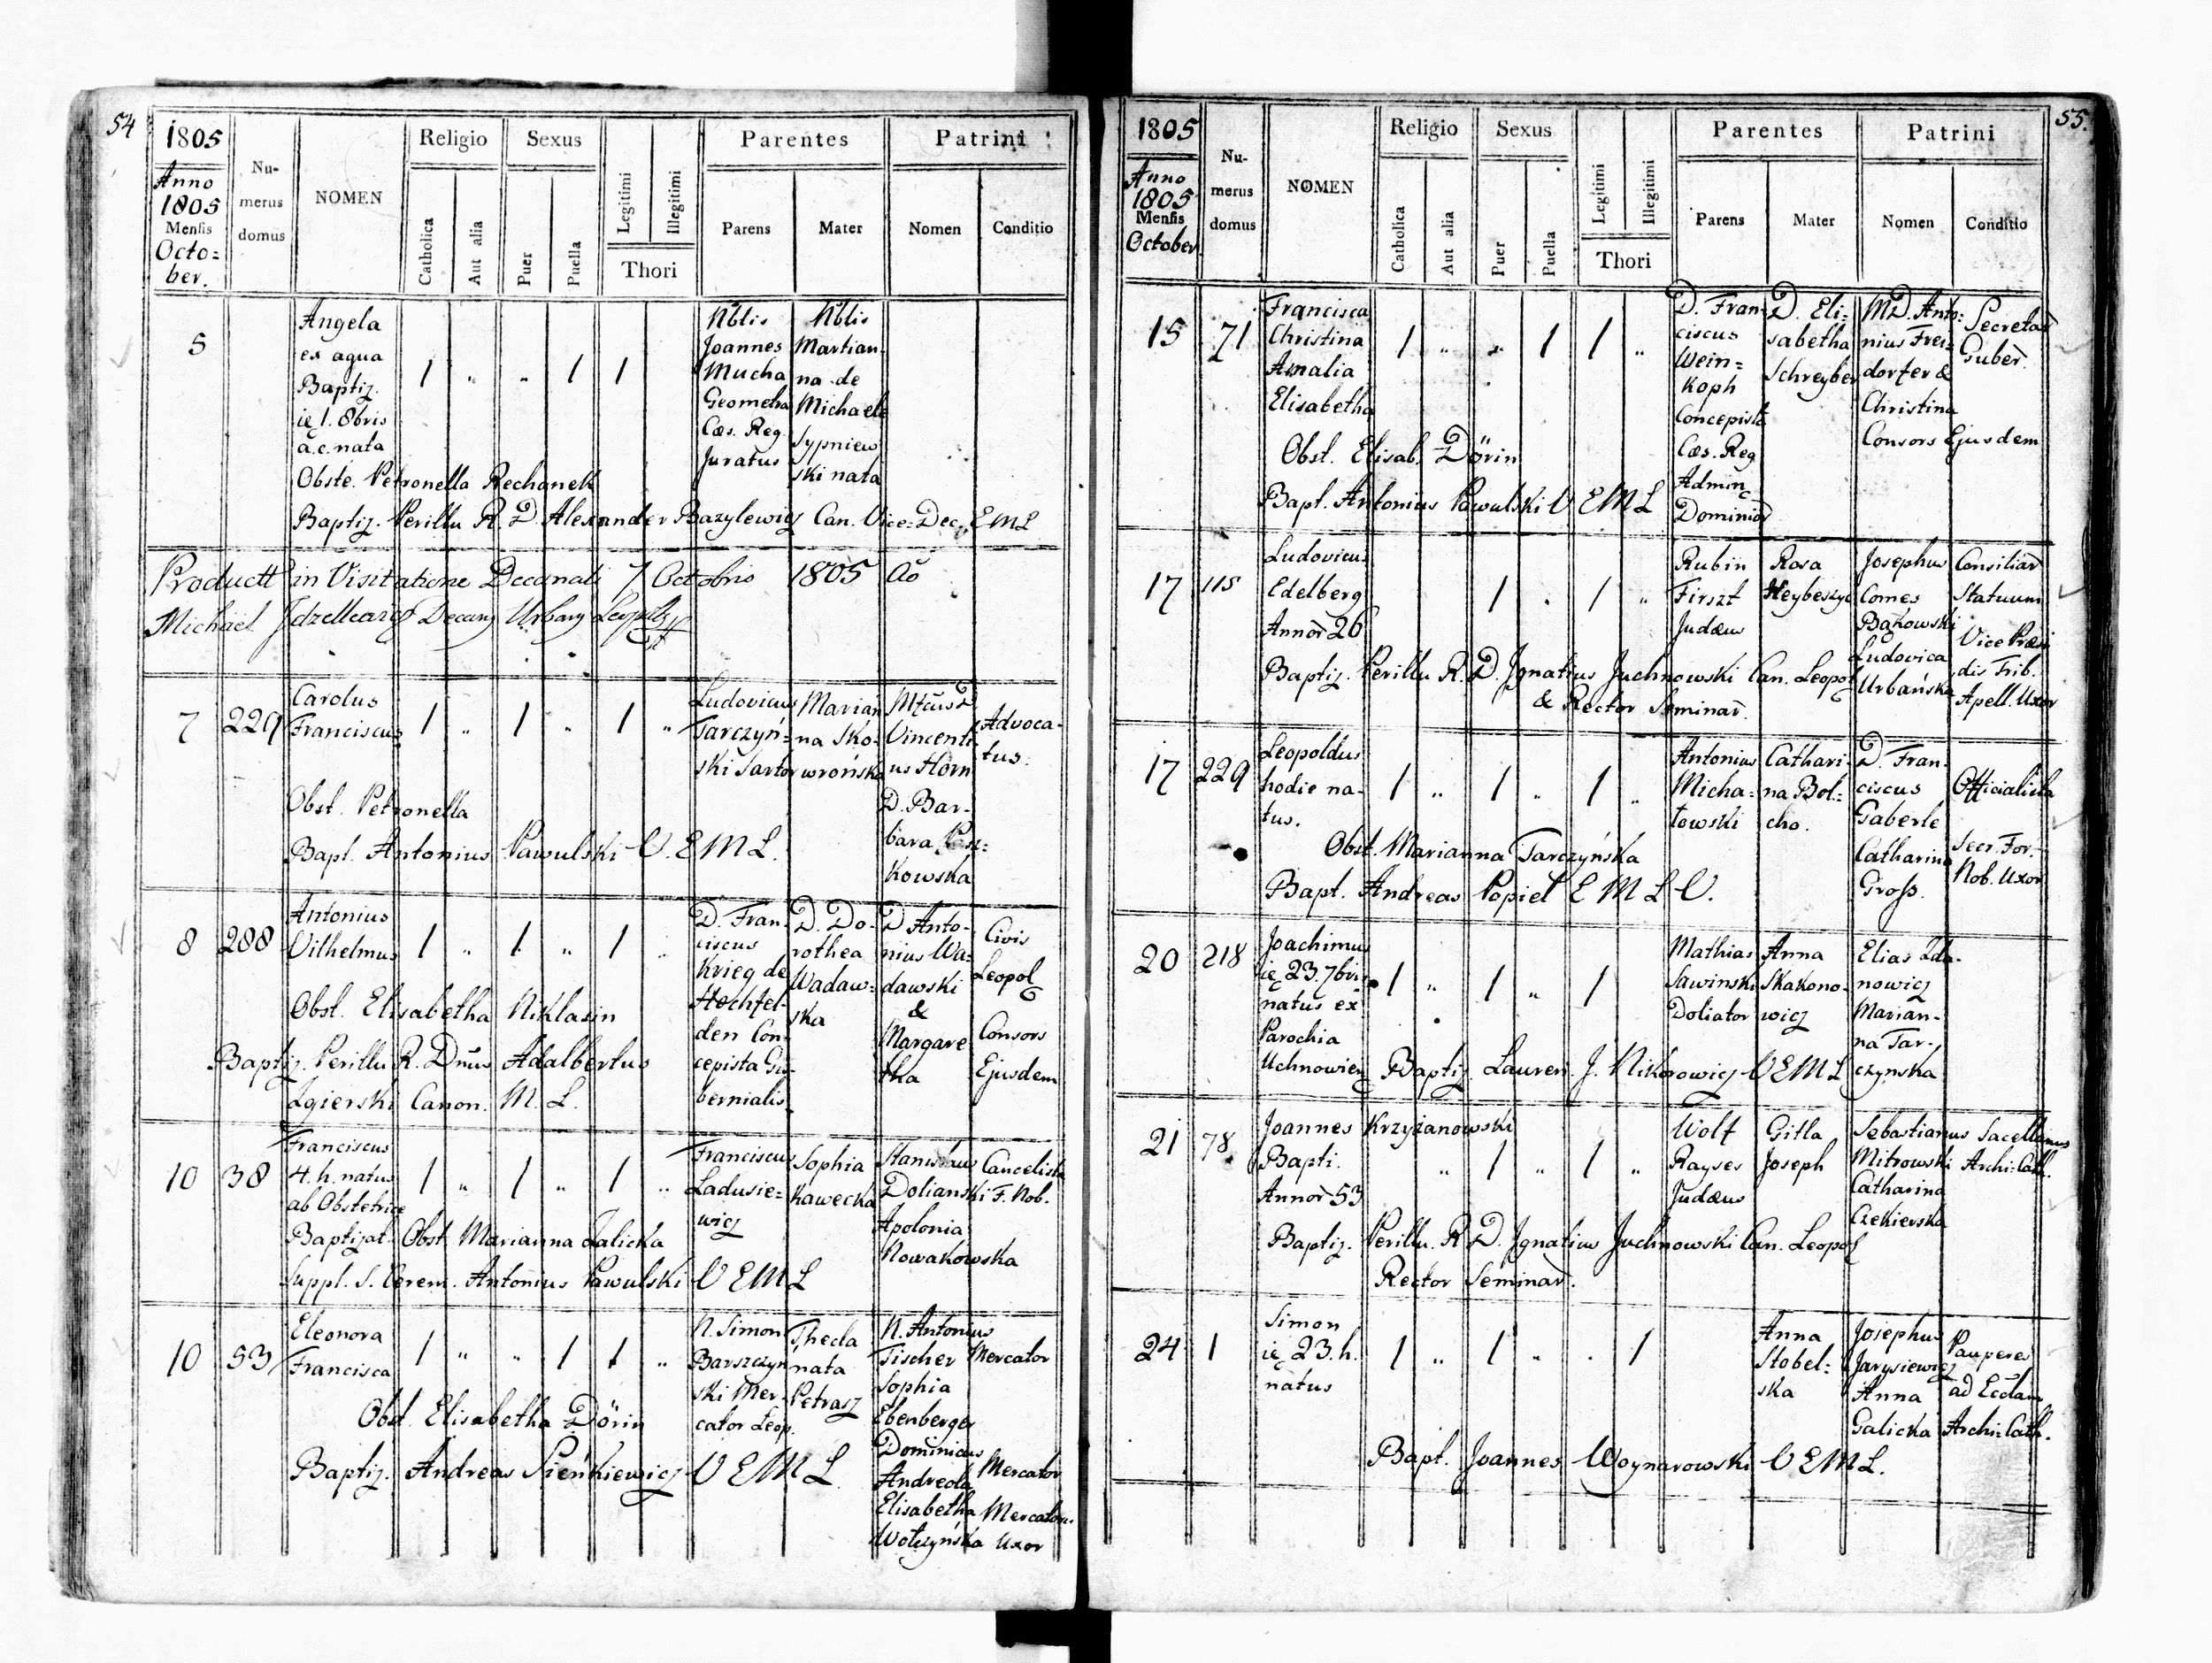 54
1805
Anno
1805
Mensis
Octo=
ber.
Nu-
merus
domus
NOMEN
Religio
Catholica
Aut alia
Sexus
Puer
Puella
Legitimi
Illegitimi
Thori
Parentes
Parens
Mater
Patrini
Nomen
Conditio
5
Angela
ex aqua
Baptiz.
ie 1. 8bris
a.c. nata
1 " " 1 1
Nblis
Joannes
Mucha
Geometra
Cæs. Reg.
Juratus
Nblis
Martian
na de
Michaele
Sypniew
ski nata
Obste. Petronella Rechanek
Baptiz. Perillu R. D. Alexander Bazylewicz Can. Vice-Dec. EML
Product in Visitatione Decanali 7 Octobris 1805 Ao
Michael
7
229
Carolus
Franciscus
1 " 1 " 1 "
Ludovicus
Tarczyń=
ski Sartor
Marian
na Sko=
wrońska
Vincenti
us Horn
D. Bar-
bara
kowska
Advoca-
tus.
Obst. Petronella
Bapt. Antonius Pawulski V. E M L.
8
288
Antonius
Vilhelmus
1 " 1 " 1 "
D. Fran-
ciscus
Krieg de
Hochfel-
den Con-
cepista Gu-
bernialis
D. Do-
rothea
Wadaw=
ska
D Anto-
nius Wa=
dawski
&
Margare
tha
Civis
Leopol
Consors
Ejusdem
Obst. Elisabetha Niklasin
Baptiz. Perillu R. Dnus Adalbertus
Zgierski Canon. M. L.
10
38
Franciscus
4. h. natus
ab Obstetrice
Baptizat.
1 " 1 " 1 "
Franciscus
Ladusie=
wicz
Sophia
Kawecka
Stanislaus
Dolianski
Apolonia
Nowakowska
Cancelista
F. Nob.
Obst Marianna Zalicka
Suppl. S. Cerem. Antonius Pawulski V EML
10
53
Eleonora
Francisca
1 " " 1 1 "
N. Simon
Barszczyn
ski Mer-
cator Leop.
Thecla
nata
Petrasz
N. Antonius
Fischer
Sophia
Ebenberger
Dominicus
Andreola
Elisabetha
Wolczyńska
Mercator
Mercator
Mercatoris
Uxor
Obst. Elisabetha Dörin
Baptiz. Andreas Sieńkiewicz V E M L
55.
1805
Anno
1805
Mensis
October
Nu-
merus
domus
NOMEN
Religio
Catholica
Aut alia
Sexus
Puer
Puella
Legitimi
Illegitimi
Thori
Parentes
Parens
Mater
Patrini
Nomen
Conditio
15
71
Francisca
Christina
Amalia
Elisabetha
1 " " 1 1 "
D. Fran-
ciscus
Wein=
koph
Concepista
Cæs. Reg
Admin
Dominior
D. Eli=
sabetha
Schreyber
MD. Anto=
nius Frei=
dorfer &
Christina
Consors Ejusdem
Secretar
Guber.
Obst. Elisab. Dörin
Bapt. Antonius Pawulski V E M L
17
115
Ludovicus
Edelberg
Annor 26
1 . 1 "
Rubin
Firszt
Judæus
Rosa
Heybeszyc
Josephus
Comes
Bąkowski
Ludovica
Urbańska
Consiliar
Statuum
Vice Præsi
dis Trib.
Apell. Uxor
Baptiz. Perillu R. D. Ignatius Juchnowski Can. Leopol
& Rector Seminar.
17
229
Leopoldus
hodie na-
tus.
1 " 1 " 1 "
Antonius
Micha=
towski
Cathari-
na Bol=
cho.
D. Fran-
ciscus
Gaberle
Catharina
Gross.
Officialista
Secr. For.
Nob. Uxor
Obst. Marianna Tarczyńska
Bapt. Andreas Popiel E M L V.
20
218
Joachimus
ie 23. 7bris
natus ex
Parochia
Uchnowien
1 " 1 " 1
Mathias
Sawinski
Doliator
Anna
Skakono-
wicz
Elias
nowicz
Marian-
na Tar-
czynska
Baptiz. Lauren. J. Nikorowicz V E M L
21
78
Joannes Krzyżanowski
Bapti.
Annor 53
" 1 " 1 "
Wolf
Rayses
Judæus
Gitla
Joseph
Sebastianus
Mitrowski
Catharina
Czekierska
Sacellanus
Archi: Cath.
Baptiz. Perillu. R D. Ignatius Juchnowski Can. Leopol
Rector Seminar.
24
1
Simon
ie 23. h.
natus
1 " 1 " . 1
Anna
Stobel=
ska
Josephus
Jarysiewicz
Anna
Galicka
Pauperes
ad Ecclam
Archi: Cath.
Bapt. Joannes Woynarowski V E M L.